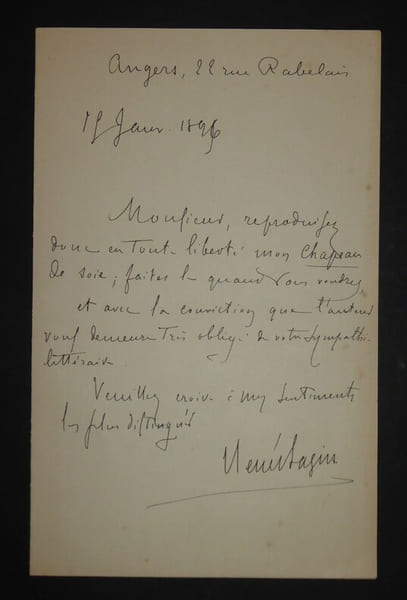 Angers, 22 rue Rabelais
15 Janv. 1896
Monsieur, reproduisez
donc en toute liberté mon Chapeau
de soie ; faites le quand vous voudrez
et avec la conviction que l'auteur
vous demeure très obligé de votre sympathie
littéraire.
Veuillez croire à mes sentiments
les plus distingués
René Bazin